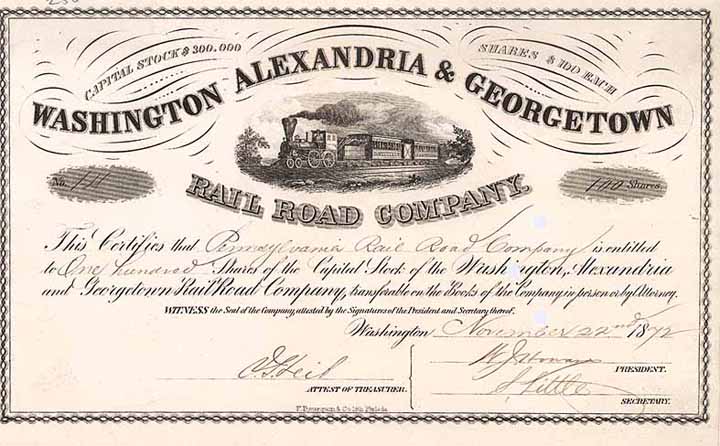 CAPITAL STOCK $ 300.000
SHARES $ 100 EACH
WASHINGTON ALEXANDRIA & GEORGETOWN
RAIL ROAD COMPANY.
No. 111
100 Shares.
This Certifies that Pennsylvania Rail Road Company is entitled
to One hundred Shares of the Capital Stock of the Washington, Alexandria
and Georgetown Rail Road Company, transferable on the Books of the Company in person or by Attorney.
WITNESS the Seal of the Company, attested by the Signatures of the President and Secretary thereof.
Washington November 22nd 1872
PRESIDENT.
ATTEST OF TREASURER.
S. Little
SECRETARY.